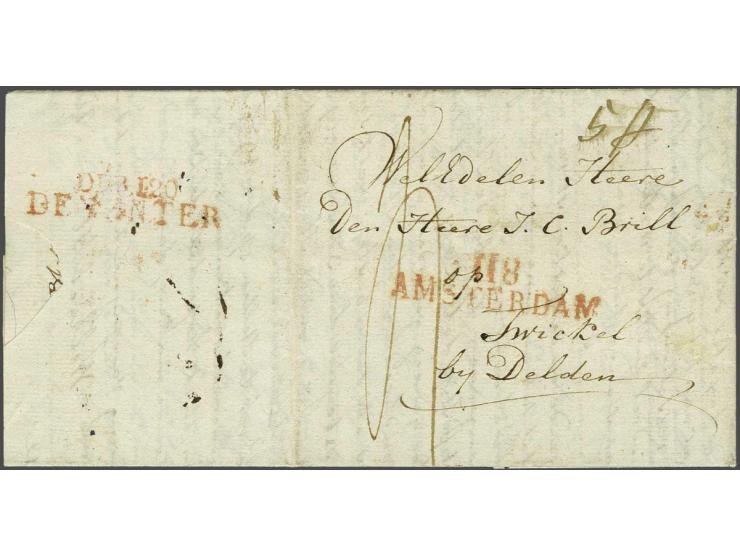 5 ff
WelEdelen Heere
Den Heere J. C. Brill
op
Twickel
by Delden
118
AMSTERDAM
DEB.120
DEVENTER